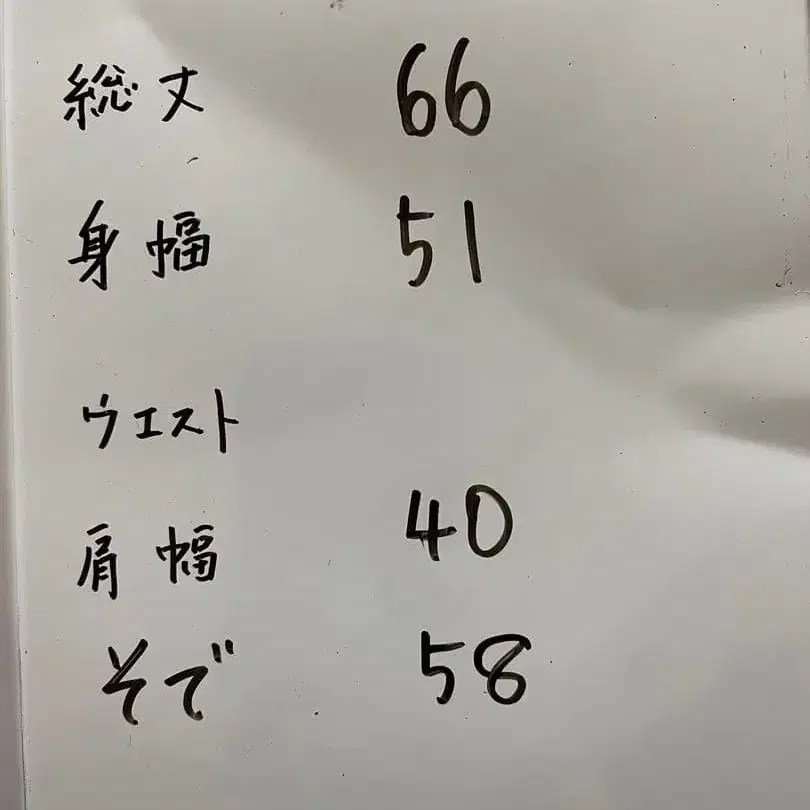 総丈 66
身幅 51
ウエスト
肩幅 40
そで 58